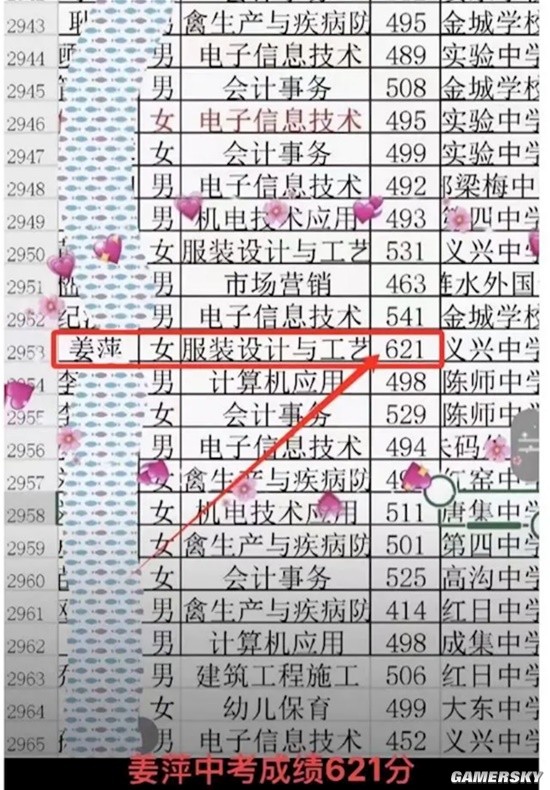 2943 男 禽生产与疾病防 495 金城学校
2944 男 电子信息技术 489 实验中学
2945 男 会计事务 508 金城学校
2946 女 电子信息技术 495 实验中学
2947 女 会计事务 499 实验中学
2948 男 电子信息技术 492 郑梁梅中
2949 男 机电技术应用 493 第四中学
2950 女 服装设计与工艺 531 义兴中学
2951 男 市场营销 463 涟水外国
2952 纪 男 电子信息技术 541 金城学校
2953 姜萍 女 服装设计与工艺 621 义兴中学
2954 李 男 计算机应用 498 陈师中学
2955 李 女 会计事务 529 陈师中学
2956 男 电子信息技术 494
2957 女 禽生产与疾病防 窑中学
2958 女 机电技术应用 511 唐集中学
2959 女 禽生产与疾病防 501 第四中学
2960 女 会计事务 525 高沟中学
2961 男 禽生产与疾病防 414 红日中学
2962 男 计算机应用 498 成集中学
2963 男 建筑工程施工 506 红日中学
2964 女 幼儿保育 499 大东中学
2965 男 电子信息技术 452 义兴中学
姜萍中考成绩621分
GAMERSKY